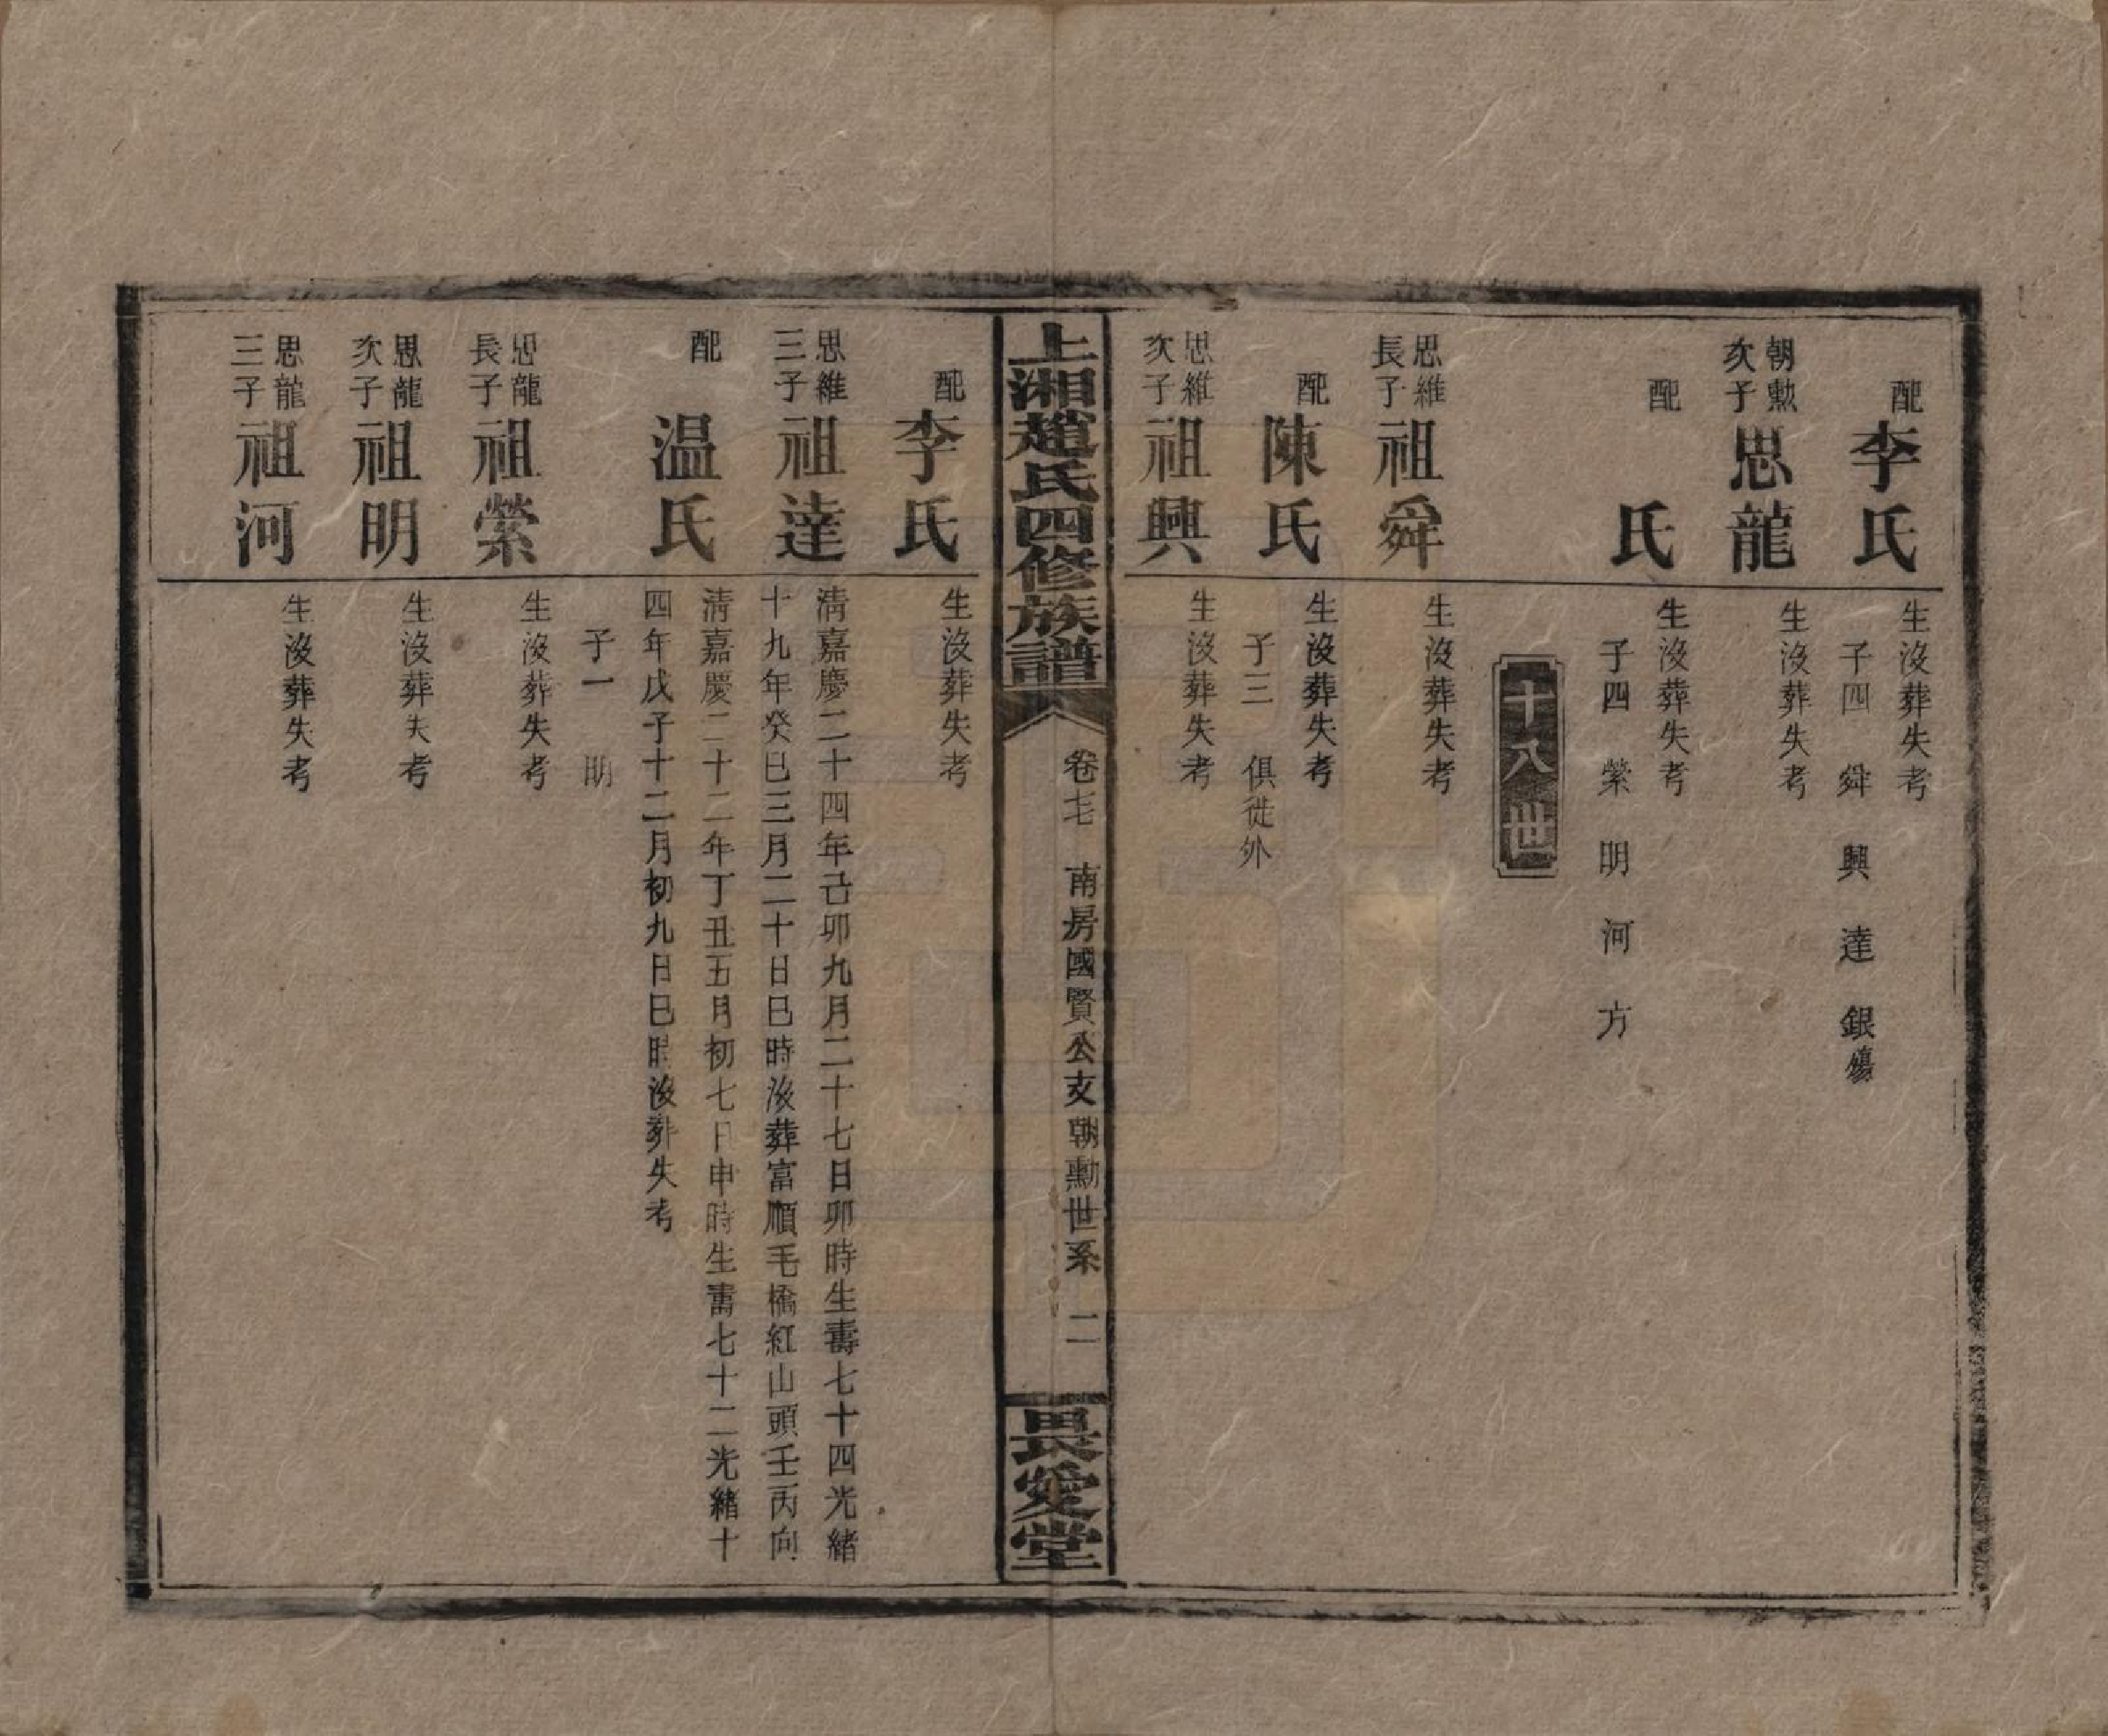 配李氏
生沒葬失考
子四 舜 興 達 銀殤
朝勳次子思龍
生沒葬失考
配 氏
生沒葬失考
子四 縈 明 河 方
十八世
思維長子祖舜
生沒葬失考
配陳氏
生沒葬失考
子三 俱徙外
思維次子祖興
生沒葬失考
上湘趙氏四修族譜 卷七 南房國賢公支朝勳世系 二 畏愛堂
配李氏
生沒葬失考
思維三子祖達
清嘉慶二十四年己卯九月二十七日卯時生壽七十四光緒
十九年癸巳三月二十日巳時沒葬富順毛橋紅山頭壬丙向
配温氏
清嘉慶二十二年丁丑五月初七日申時生壽七十二光緒十
四年戊子十二月初九日巳時沒葬失考
子一 明
思龍長子祖縈
生沒葬失考
思龍次子祖明
生沒葬失考
思龍三子祖河
生沒葬失考